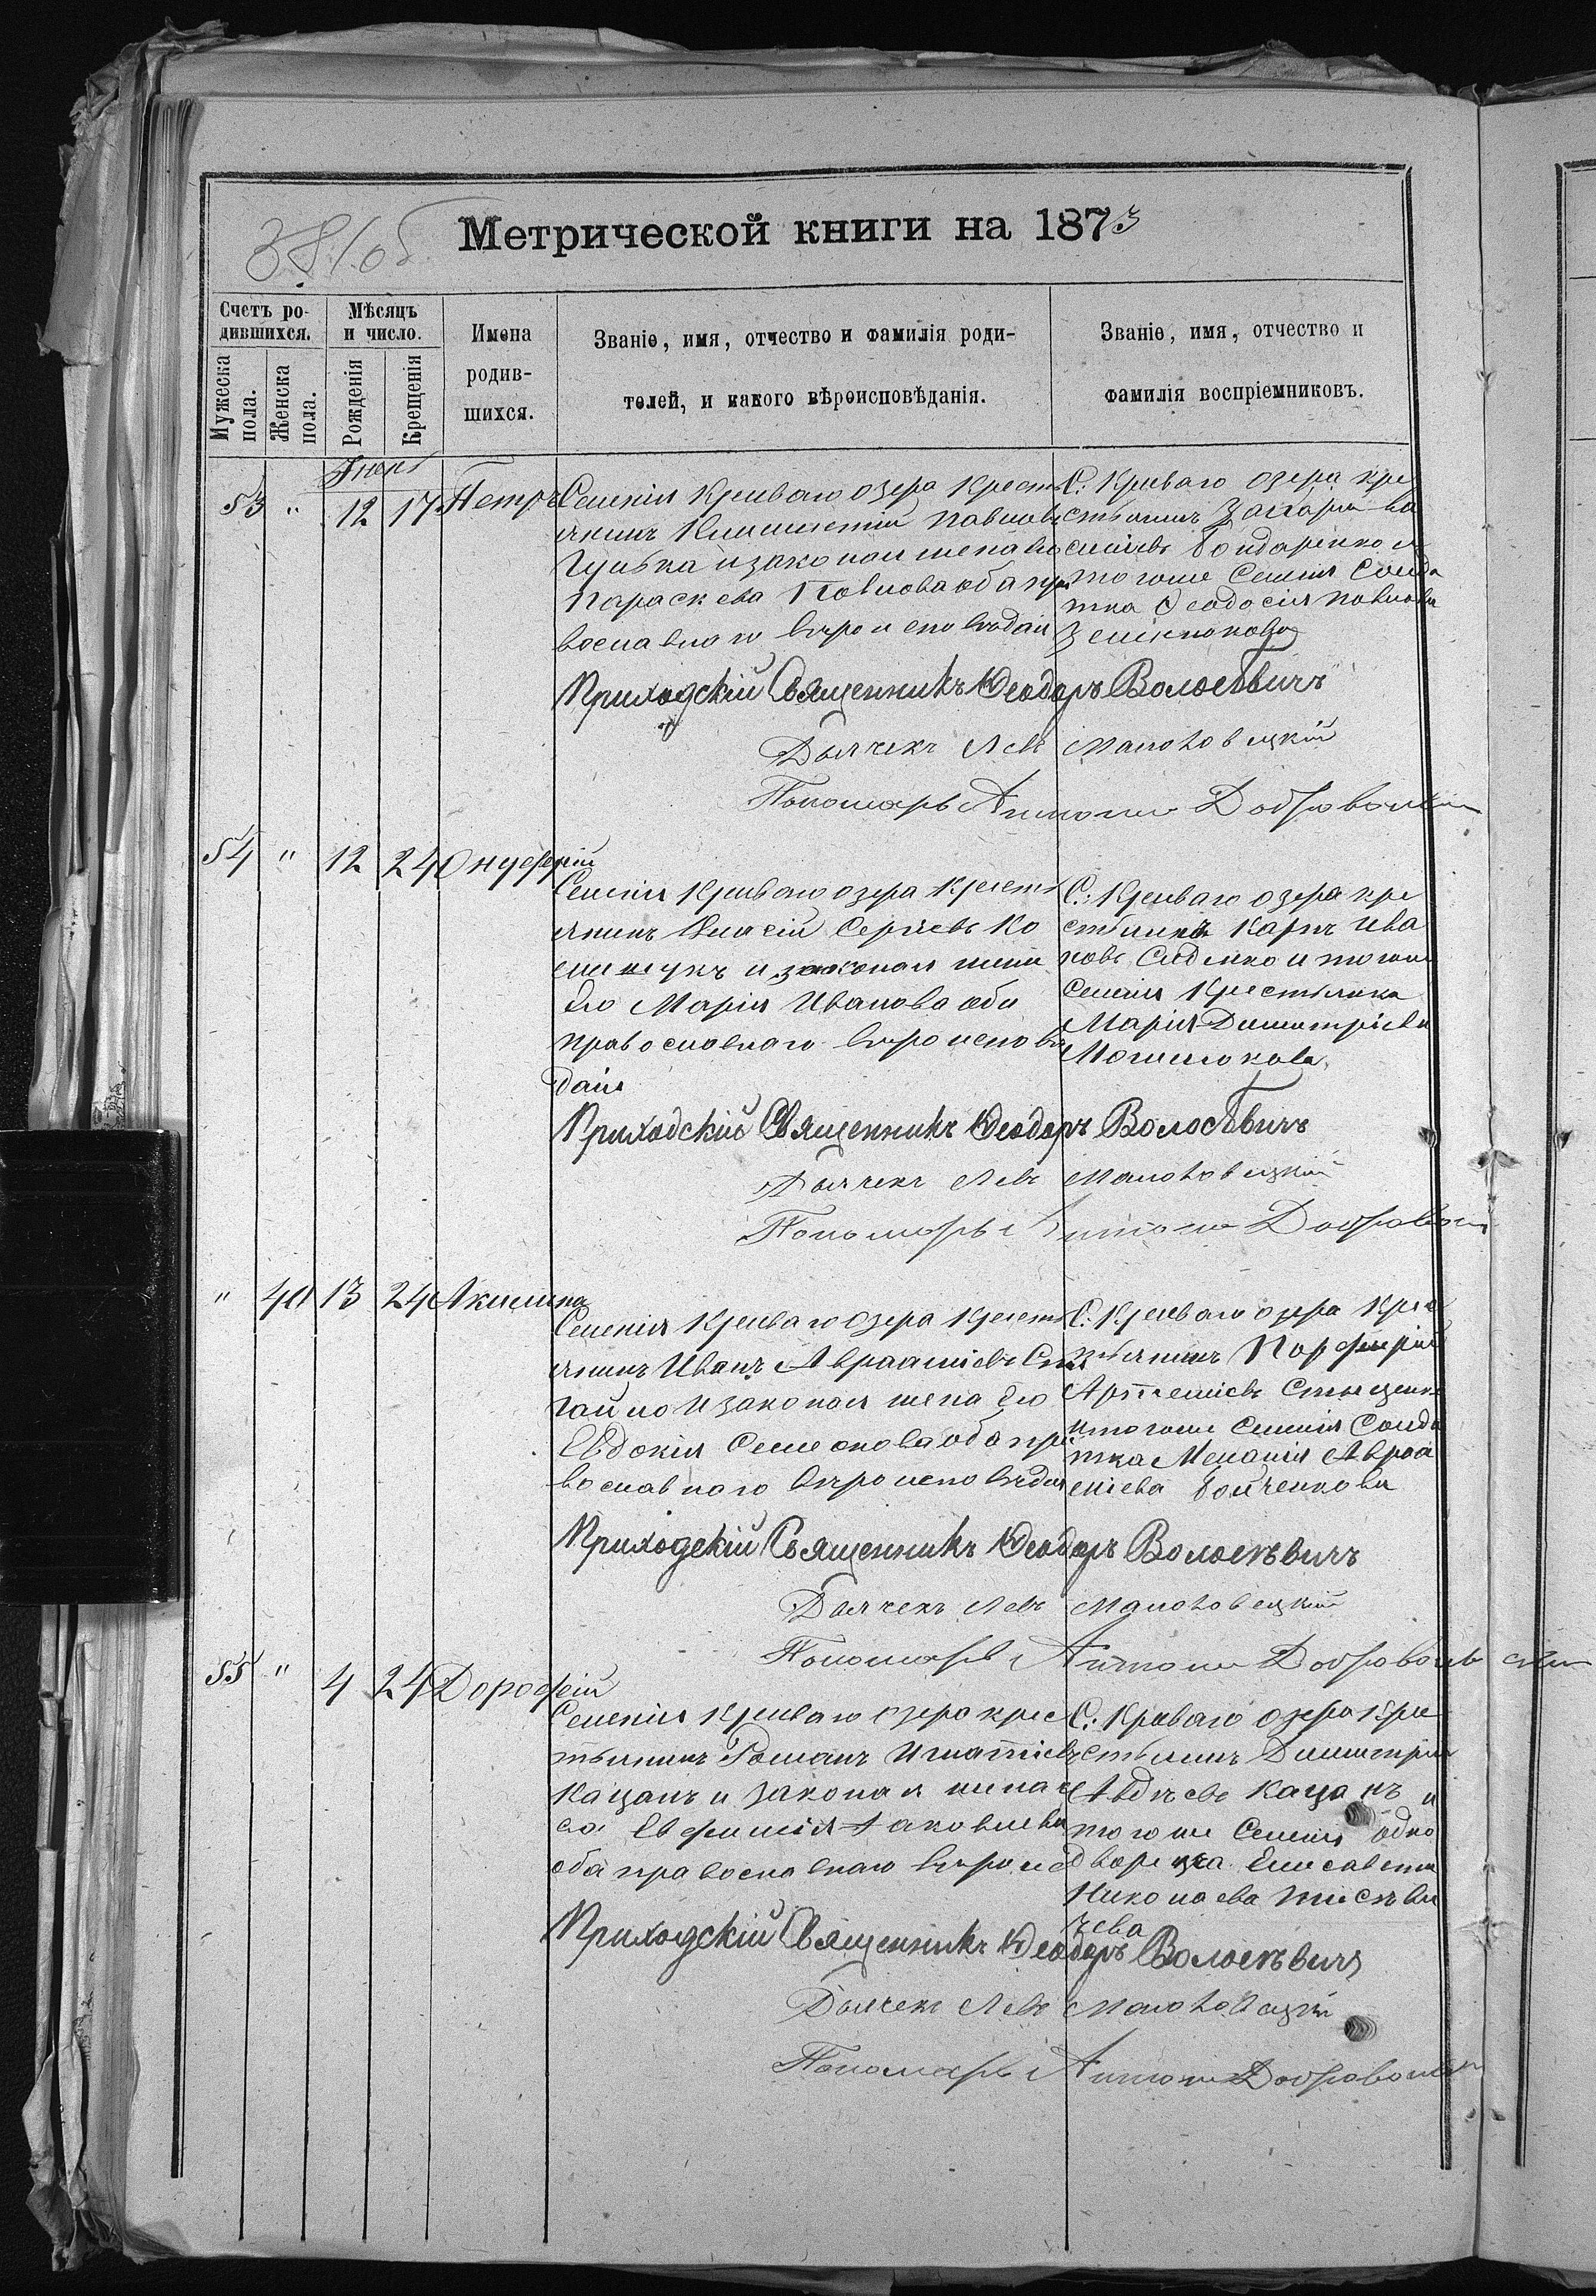 381об
Метрической книги на 1873
Счетъ ро-
дившихся.
Мѣсяцъ
и число.
Мужеска
пола.
Женска
пола.
Рожденія
Крещенія
Имена
родив-
шихся.
Званіе, имя, отчество и фамилія роди-
телей, и какого вѣроисповѣданія.
Званіе, имя, отчество и
фамилія воспріемниковъ.
Іюнь
53 " 12 17 Петръ
Селенія Криваго озера Крест
янинъ Климентій Павловъ
Гулька и законая жена его
Параскева Павлова оба пра
вославнаго вѣроисповѣдан
С. Криваго озера кре
стьянинъ Захарій Ва
силіевъ Бондаренко и
тогоже Селенія Солда
тка Феодосія Павлова
Приходскій Священникъ Феодоръ Волосѣвичъ
Дьячекъ Левъ Малоховецкій
Пономарь Антоній Добровольскій
54 " 12 24 Онуфрій
Селенія Криваго озера Крест
янинъ Власій Сергіевъ Ко
и законая жена
его Марія Иванова оба
православнаго вѣроисповѣ
данія
С. Криваго озера кре
стьянинъ Карпъ Ива
новъ и тогоже
Селенія Крестьянка
Марія Димитріева
Приходскій Священникъ Феодоръ Волосѣвичъ
Дьячекъ Левъ Малоховецкій
Пономарь Антоній Добровольскій
" 40 13 24 Акилина
Селенія Криваго Озера Крест
янинъ Иванъ Аврааміевъ
и законая жена его
Евдокія Семенова оба пра
вославнаго вѣроисповѣдан
С. Криваго озера Кре
стьянинъ Порфирій
Артеміевъ
и тогоже Селенія Солда
тка Меланія Авраа
міева Бойченкова
Приходскій Священникъ Феодоръ Волосѣвичъ
Дьячекъ Левъ Малоховецкій
Пономарь Антоній Добровольскій
55 " 4 24 Дорофей
Селенія Криваго озера крес
тьянинъ Романъ Игнатіевъ
Кацанъ и законая жена е
го Евфимія Яковлева
оба православнаго вѣроисп
С. Криваго озера Кре
стьянинъ Димитрій
Авдѣевъ Кацанъ и
тогоже Селенія Одно
дворица Елисавета
Николаева
чева
Приходскій Священникъ Феодоръ Волосѣвичъ
Дьячекъ Левъ Малоховецкій
Пономарь Антоній Добровольскій